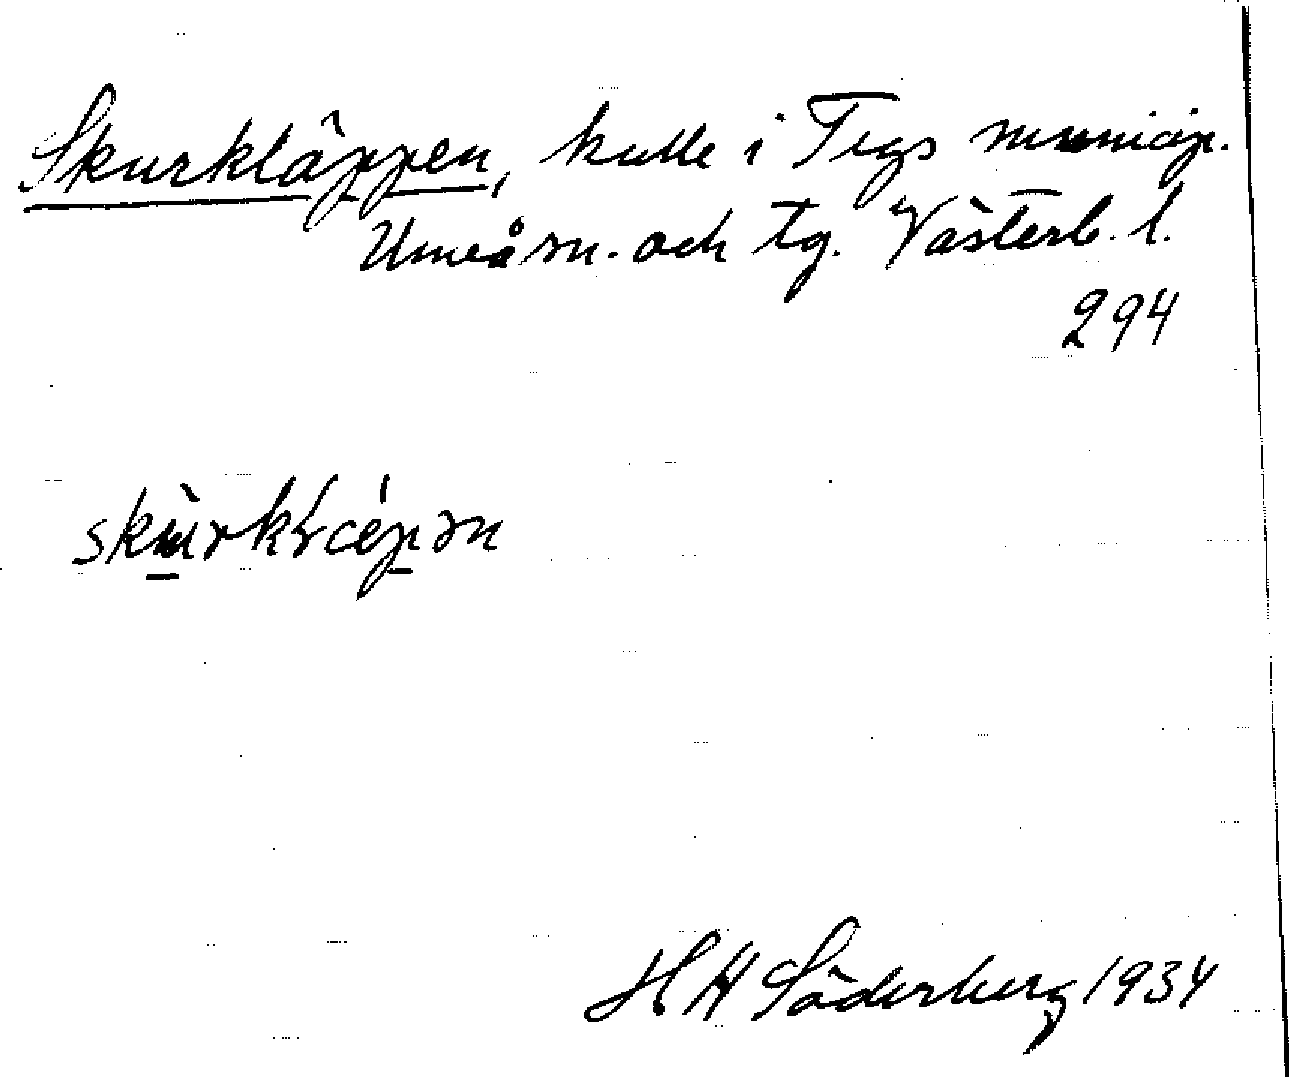 Skurkläppen, kulle i Tegs municip.
Umeå sn. och tg. Västerb. l.
294
H H Söderberg 1934